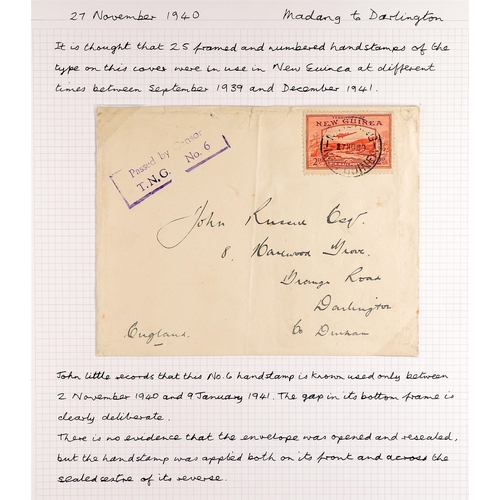 27 November 1940 Madang to Darlington
It is thought that 25 framed and numbered handstamps of the
type on this cover were in use in New Guinea at different
times between September 1939 and December 1941.
Passed by Censor
T.N.G. No. 6
NEW GUINEA
John Russell Esq.
8, Grove
Grange Road
Darlington
Co Durham
England
John Little records that this No. 6 handstamp is known used only between
2 November 1940 and 9 January 1941. The gap in its bottom frame is
clearly deliberate.
There is no evidence that the envelope was opened and resealed,
but the handstamp was applied both on its front and across the
sealed centre of its reverse.